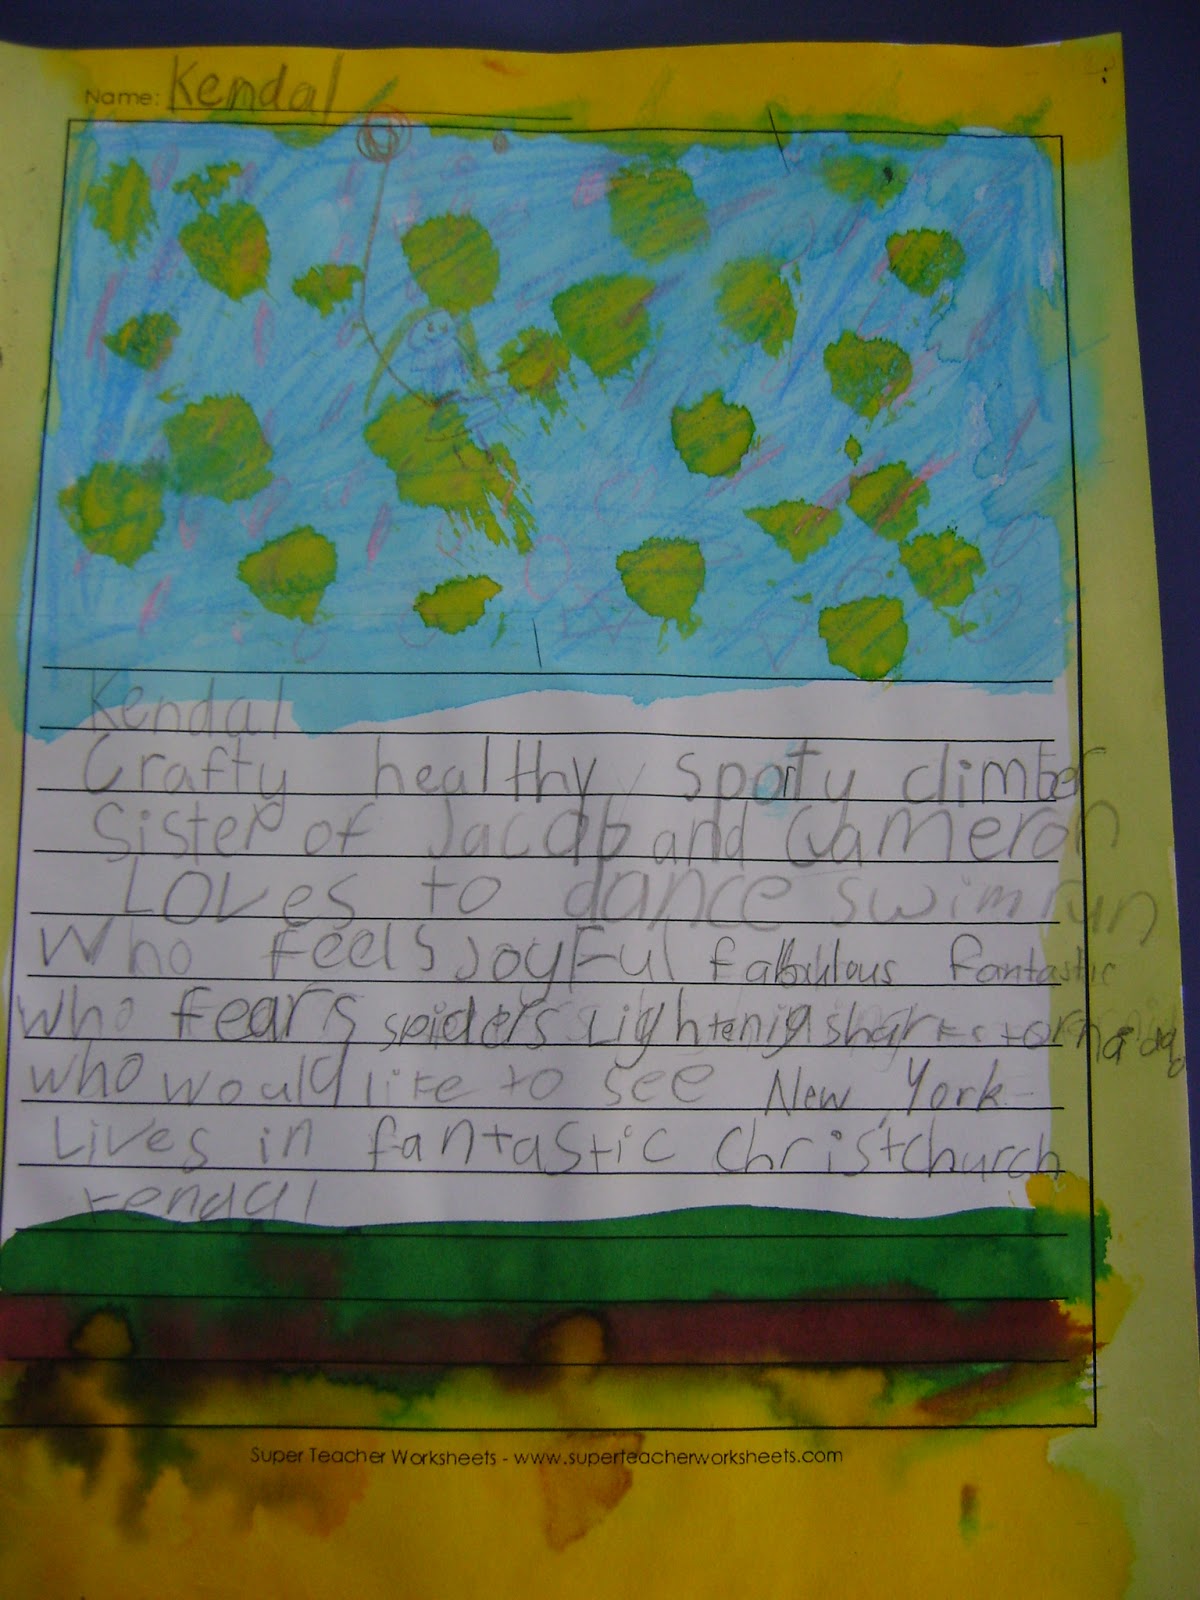 Name: Kendal
Kendal
Crafty healthy sporty climber
Sister of Jacob and Cameron
Loves to dance swim run
Who feels joyful fabulous fantastic
Who fears spiders Lightenig sharks tornado
who would like to see New York
Lives in fantastic Christchurch
kendal
Super Teacher Worksheets - www.superteacherworksheets.com